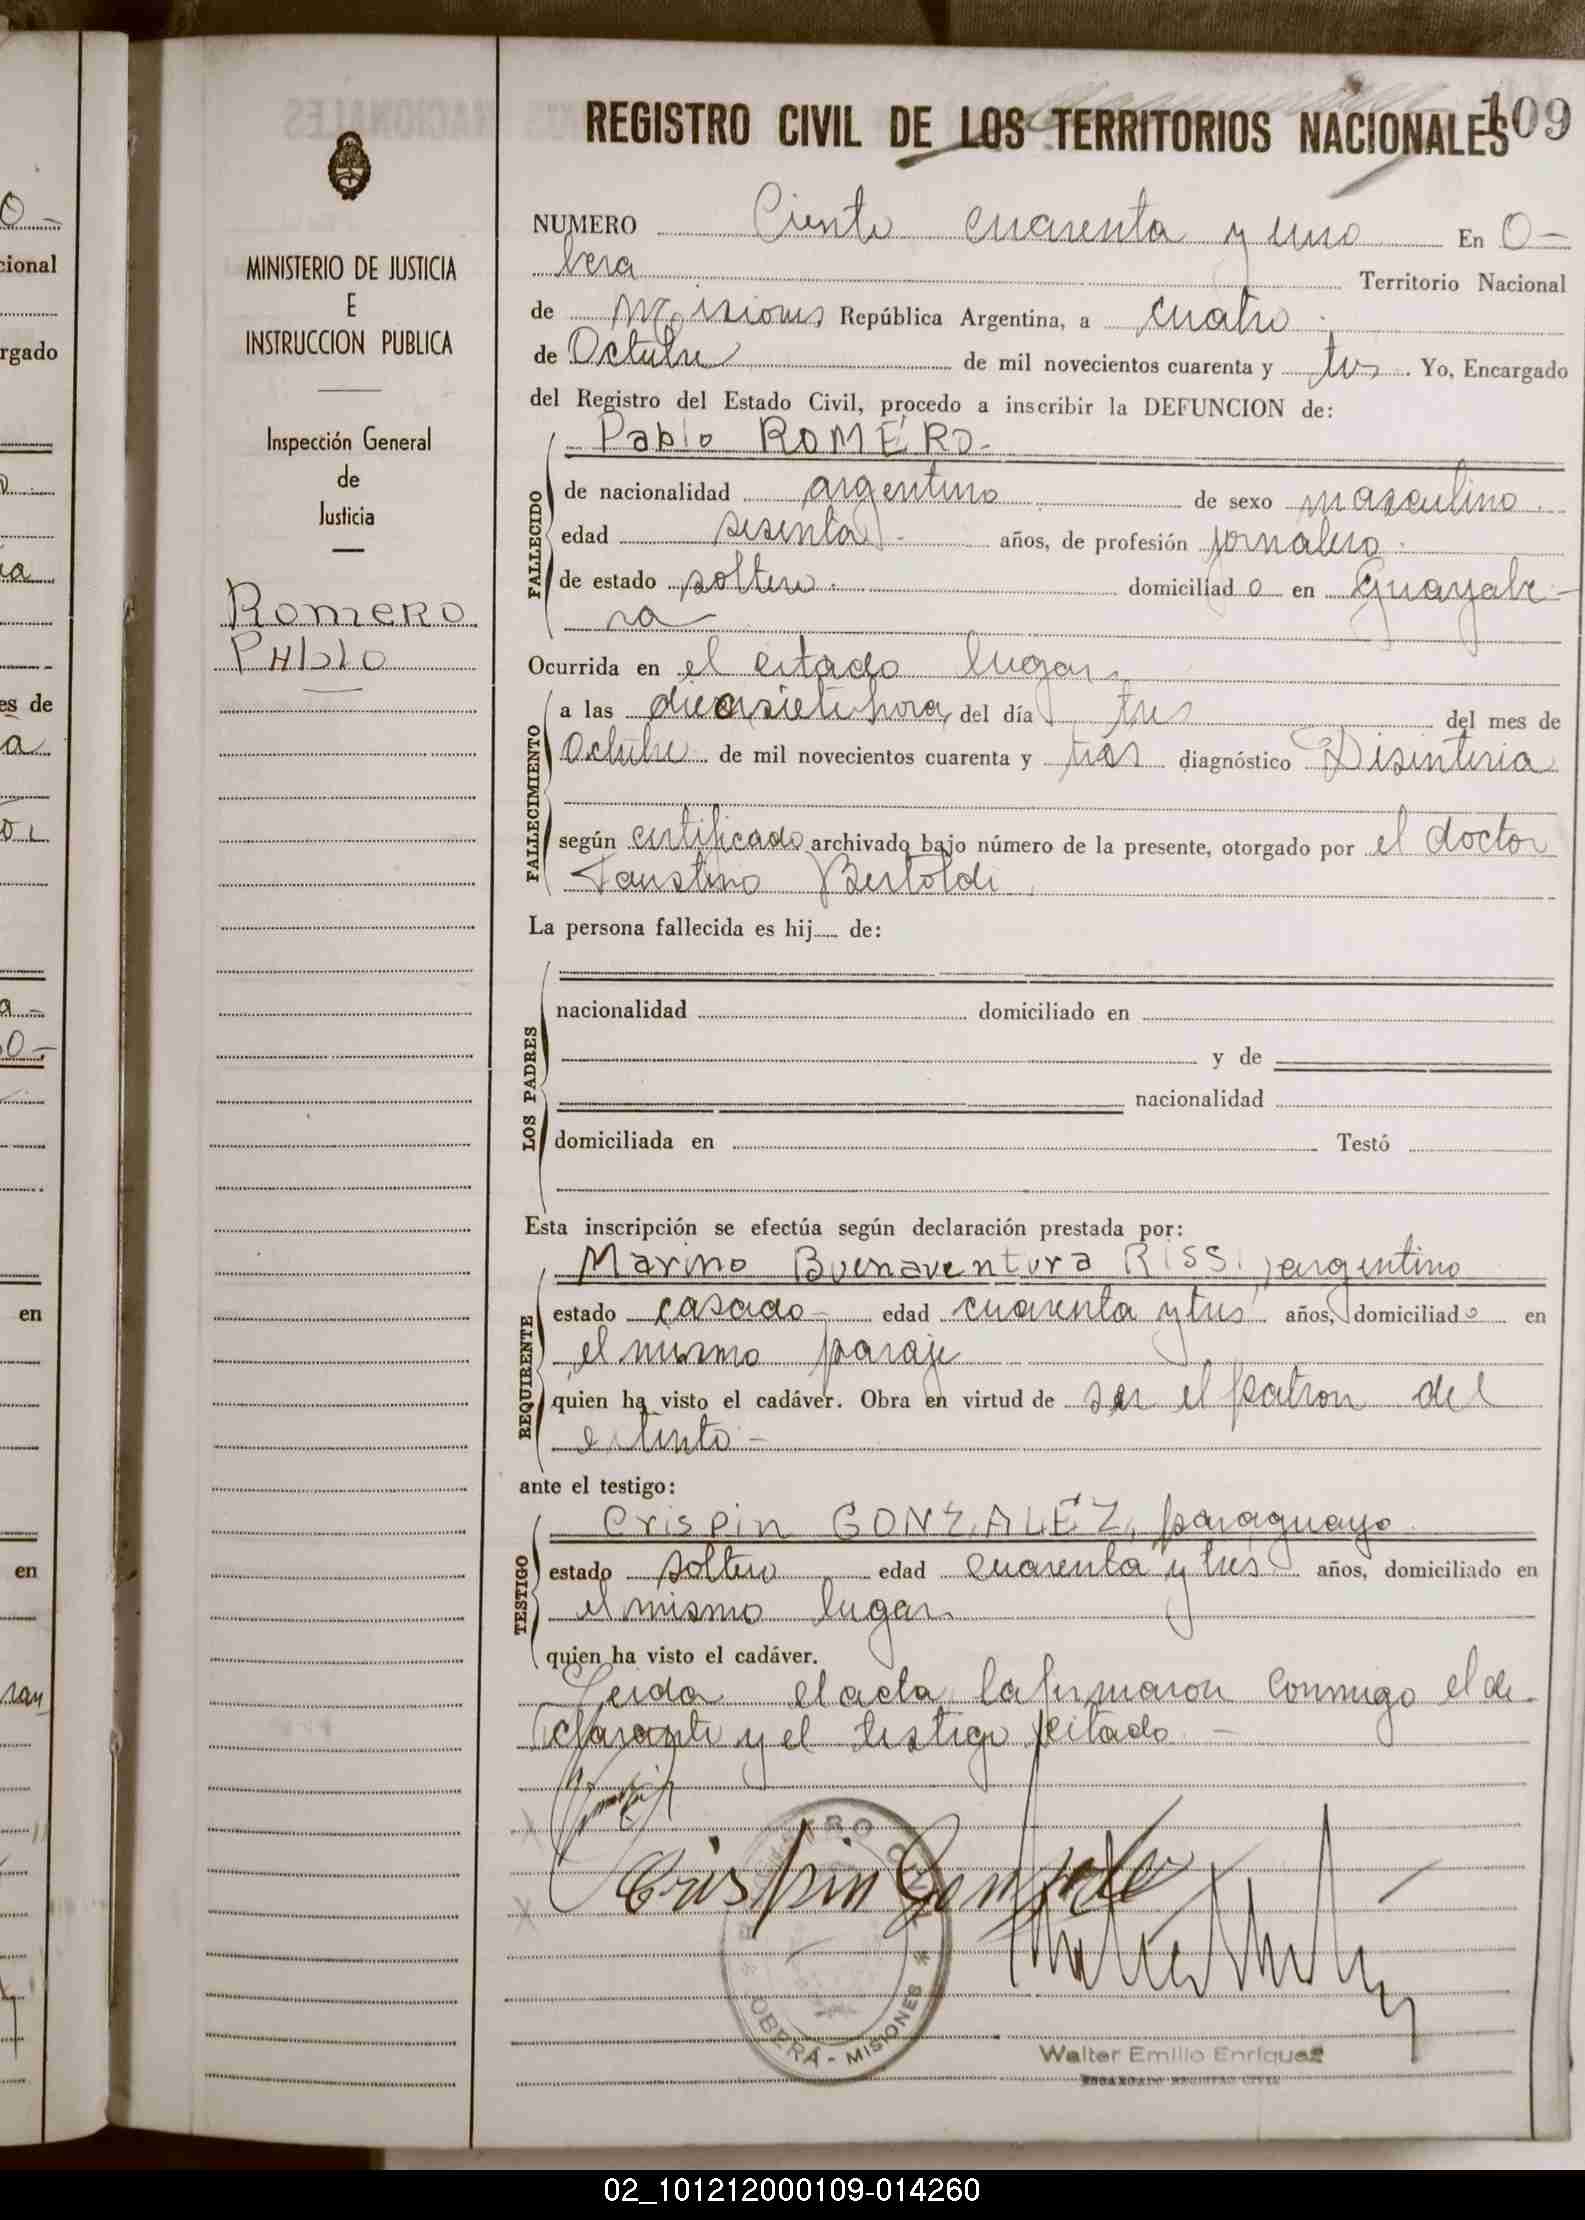 REGISTRO CIVIL DE LOS TERRITORIOS NACIONALES
109
MINISTERIO DE JUSTICIA
E
INSTRUCCION PUBLICA
Inspección General
de
Justicia
Romero
Pablo
NUMERO Ciento cuarenta y uno En O-
bera Territorio Nacional
de Misiones República Argentina, a cuatro
de Octubre de mil novecientos cuarenta y tres. Yo, Encargado
del Registro del Estado Civil, procedo a inscribir la DEFUNCION de:
Pablo ROMERO-
FALLECIDO
de nacionalidad argentino de sexo masculino
edad sesenta años, de profesión jornalero
de estado soltero domiciliado en Guayabe-
ra
Ocurrida en el citado lugar
FALLECIMIENTO
a las diecisiete hora, del día tres del mes de
Octubre de mil novecientos cuarenta y tres diagnóstico Disinteria
según certificado archivado bajo número de la presente, otorgado por el doctor
Faustino Bertoldi
La persona fallecida es hij de:
LOS PADRES
nacionalidad domiciliado en
y de
nacionalidad
domiciliada en Testó
Esta inscripción se efectúa según declaración prestada por:
REQUIRENTE
Marino Buenaventura RISSI, argentino
estado casado edad cuarenta y tres años, domiciliado en
el mismo paraje
quien ha visto el cadáver. Obra en virtud de ser el patron del
extinto-
ante el testigo:
TESTIGO
Crispin GONZALEZ, paraguayo
estado soltero edad cuarenta y tres años, domiciliado en
el mismo lugar
quien ha visto el cadáver.
Leida el acta, la firmaron conmigo el de-
clarante y el testigo citado-
Crispin Gonzale
OBERA - MISIONES
Walter Emilio Enriquez
ENCARGADO REGISTRO CIVIL
cional
rgado
es de
en
en
02_101212000109-014260